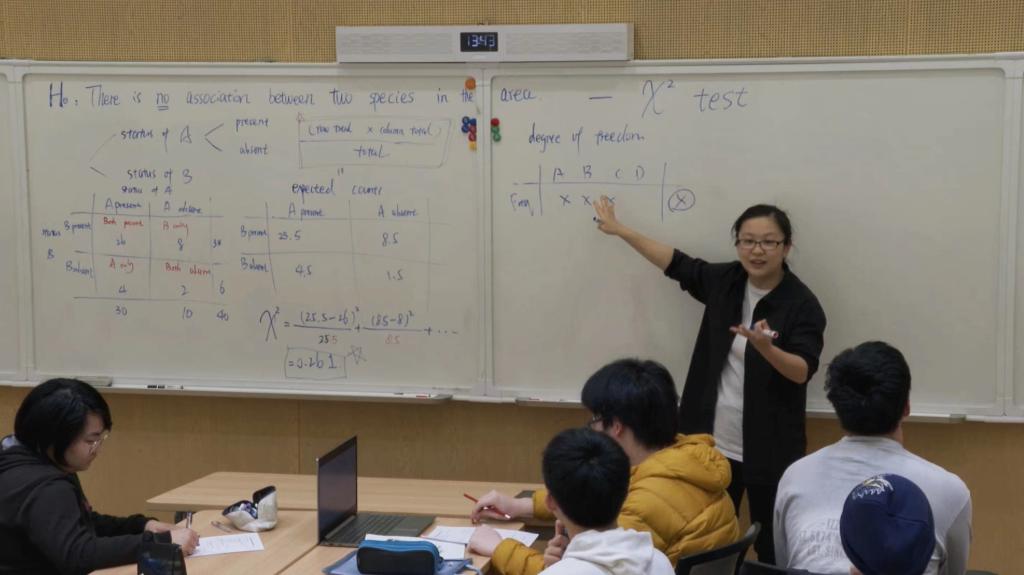 13:43
H₀: There is no association between two species in the area. — χ² test
status of A < present
absent
(row total × column total)
total
status of B
status of A
A present A absent
B present Both present B only
26 8 34
B absent A only Both absent
4 2 6
30 10 40
B
"expected" counts
A present A absent
B present 25.5 8.5
B absent 4.5 1.5
χ² = (25.5-26)²/25.5 + (8.5-8)²/8.5 + ...
= 0.261
degree of freedom
A B C D
Freq x x x x